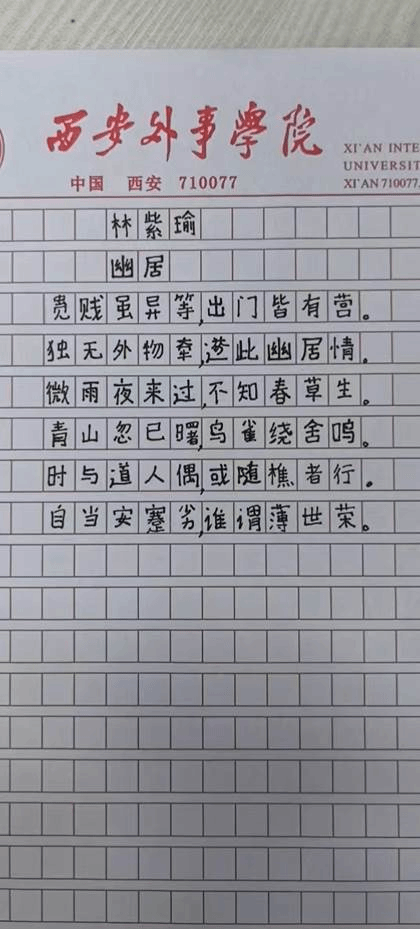 西安外事學院
XI'AN INTE
UNIVERSIT
中国 西安 710077
XI'AN 710077,
林紫瑜
幽居
贵贱虽异等,出门皆有营。
独无外物牵,遂此幽居情。
微雨夜来过,不知春草生。
青山忽已曙,鸟雀绕舍鸣。
时与道人偶,或随樵者行。
自当安蹇劣,谁谓薄世荣。